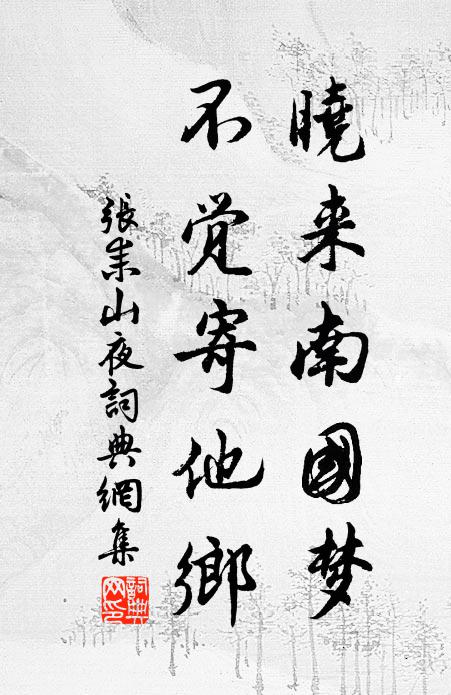 曉来南國梦
不觉寄他鄉
張耒山夜詞典網集
詞典網印